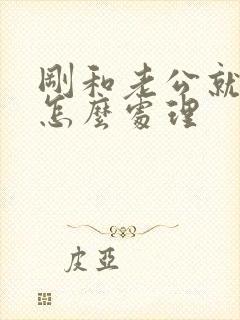 剛和老公就
怎麼處理
皮亞